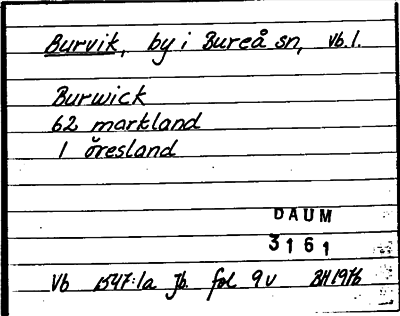 Burvik, by i Bureå sn, Vb. l.
Burwick
62 markland
1 öresland
DAUM
3161
Vb 1547:1a Jb. fol 9v BH 1976